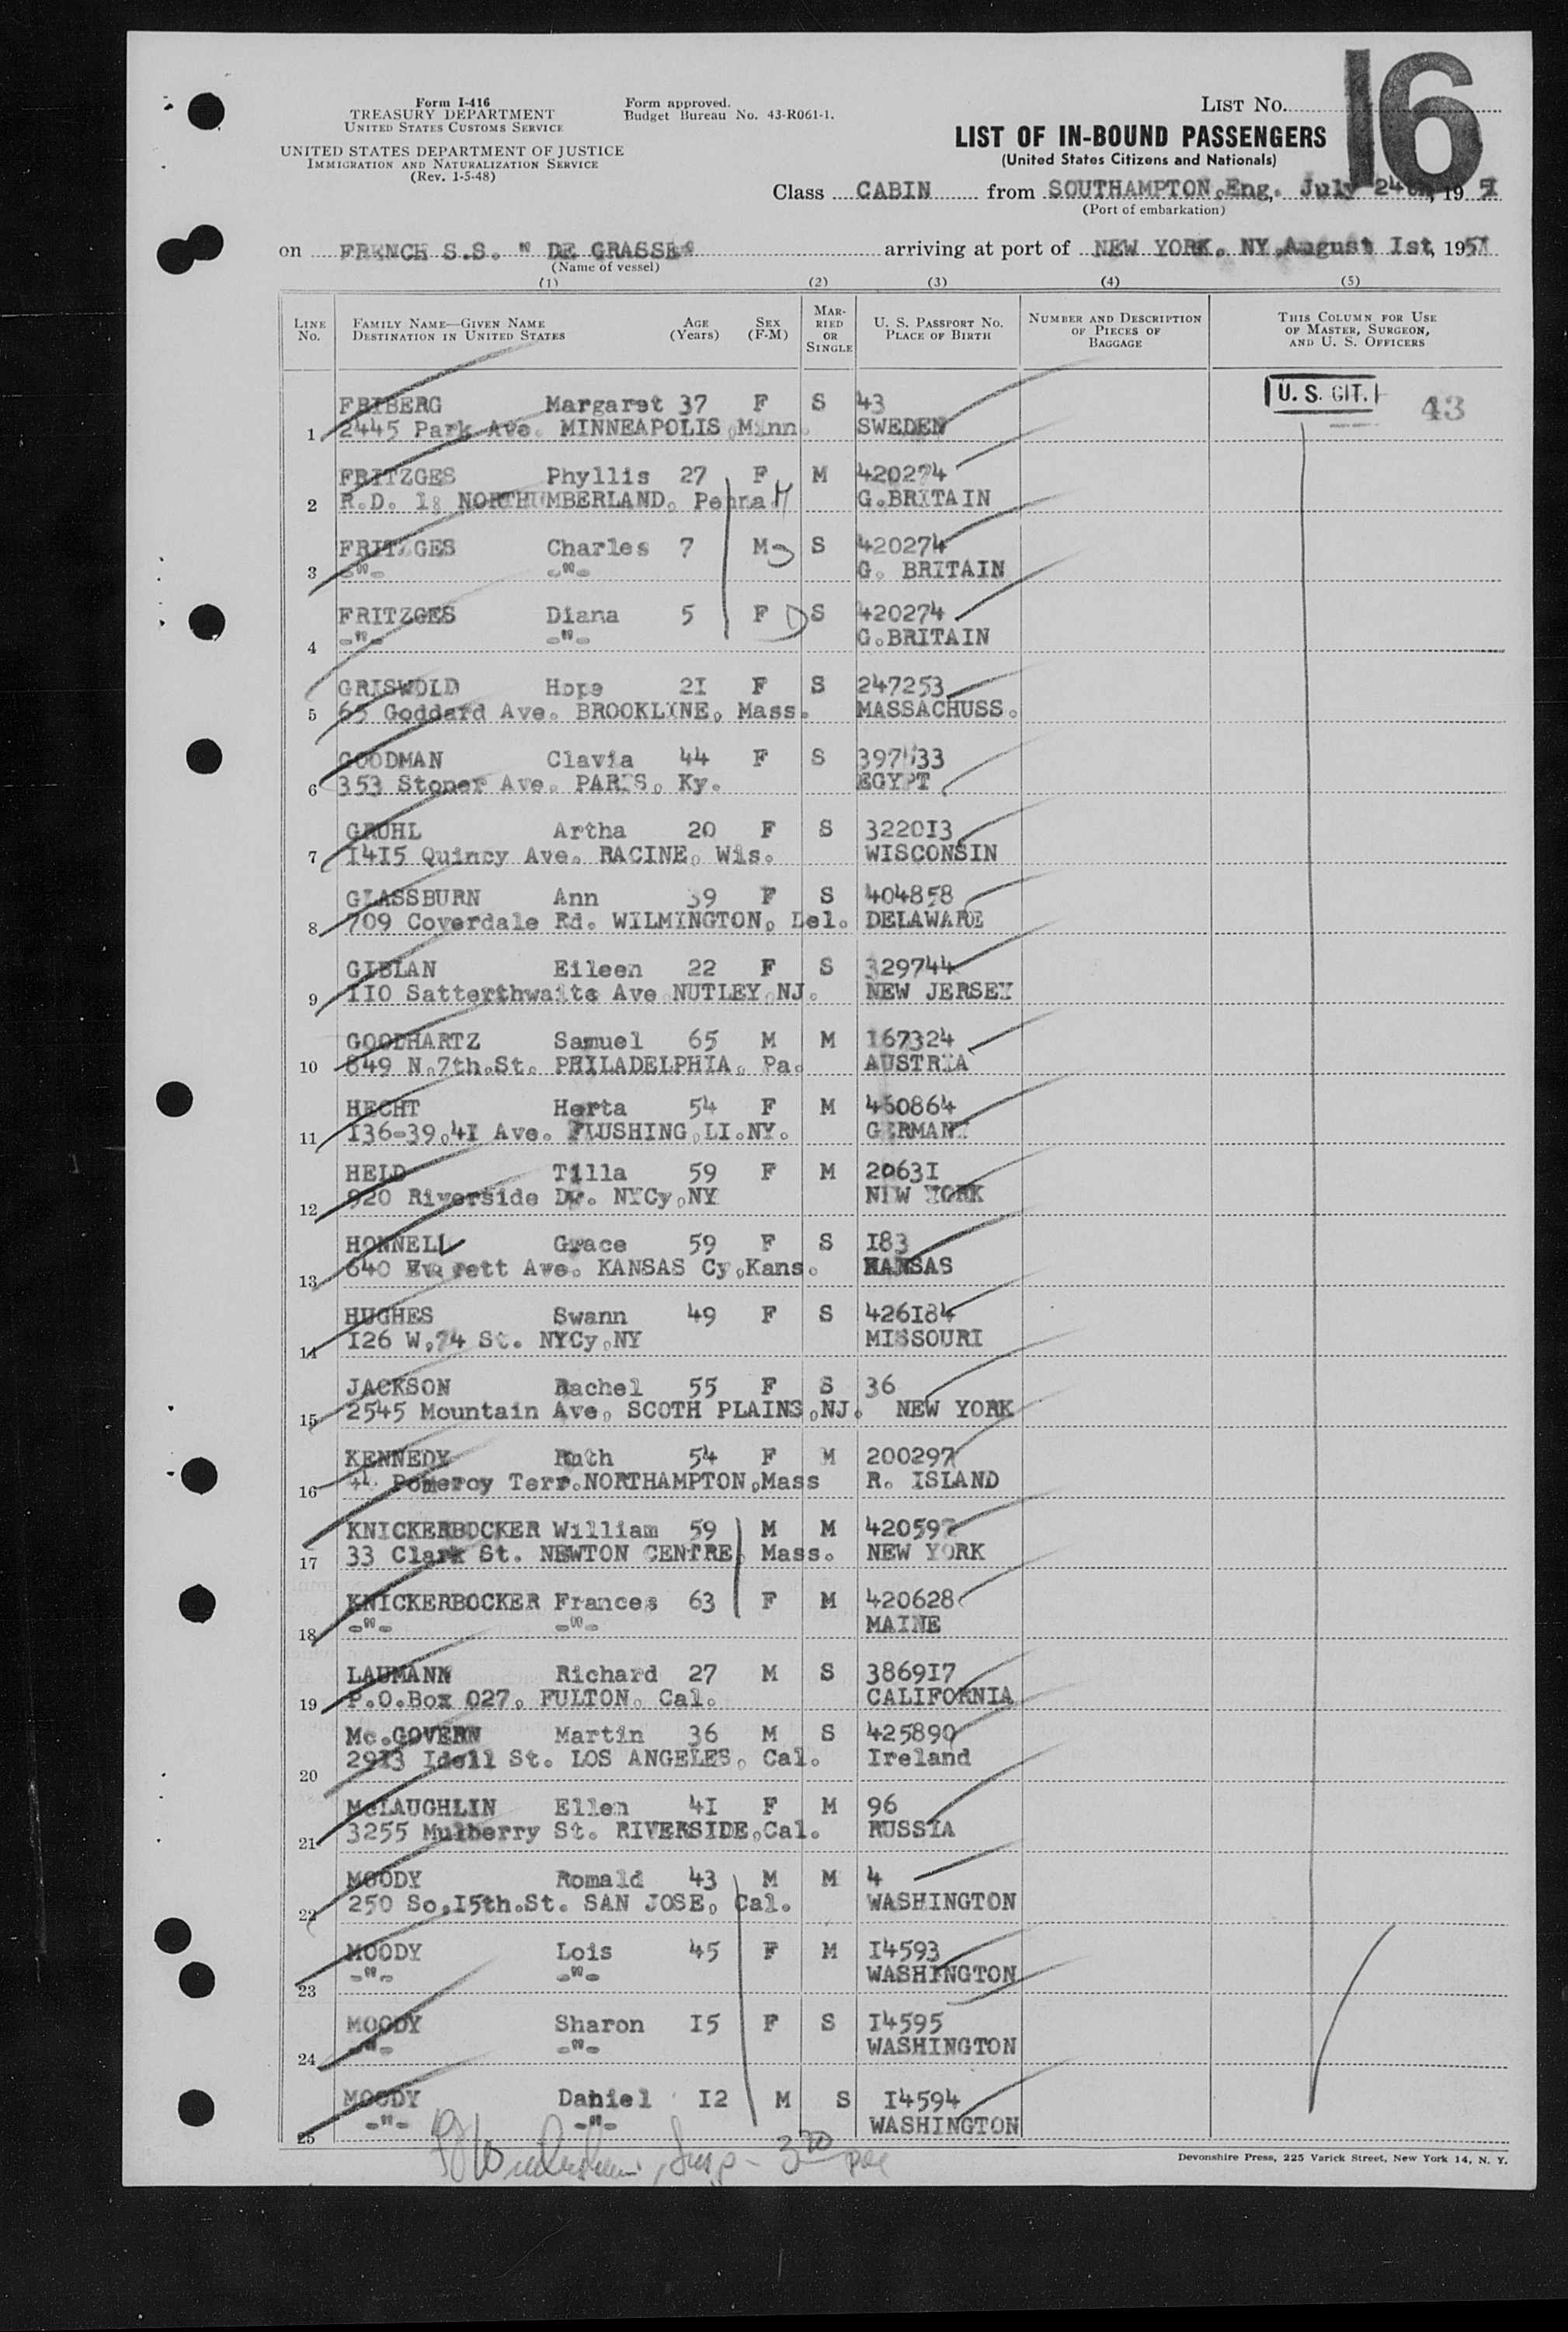 Form I-416
TREASURY DEPARTMENT
UNITED STATES CUSTOMS SERVICE
UNITED STATES DEPARTMENT OF JUSTICE
IMMIGRATION AND NATURALIZATION SERVICE
(Rev. 1-5-48)
Form approved.
Budget Bureau No. 43-R061-1.
LIST No. 16
LIST OF IN-BOUND PASSENGERS
(United States Citizens and Nationals)
Class CABIN from SOUTHAMPTON, Eng, July 24th, 1951
(Port of embarkation)
on FRENCH S.S. " DE GRASSE" arriving at port of NEW YORK, NY, August Ist, 1951
(Name of vessel)
(1) (2) (3) (4) (5)
LINE No. FAMILY NAME—GIVEN NAME DESTINATION IN UNITED STATES AGE (Years) SEX (F-M) MARRIED OR SINGLE U. S. PASSPORT No. PLACE OF BIRTH NUMBER AND DESCRIPTION OF PIECES OF BAGGAGE THIS COLUMN FOR USE OF MASTER, SURGEON, AND U. S. OFFICERS
U. S. CIT. 43
FRIBERG Margaret 37 F S 43
1 2445 Park Ave. MINNEAPOLIS, Minn. SWEDEN
FRITZGES Phyllis 27 F M 420274
2 R.D. I; NORTHUMBERLAND, Penna G.BRITAIN
FRITZGES Charles 7 M S 420274
3 -"- -"- G. BRITAIN
FRITZGES Diana 5 F S 420274
4 -"- -"- G.BRITAIN
GRISWOLD Hope 2I F S 247253
5 65 Goddard Ave. BROOKLINE, Mass. MASSACHUSS.
GOODMAN Clavia 44 F S
6 353 Stoner Ave. PARIS, Ky. EGYPT
GRUHL Artha 20 F S 3220I3
7 I4I5 Quincy Ave. RACINE, Wis. WISCONSIN
GLASSBURN Ann 39 F S 404858
8 709 Coverdale Rd. WILMINGTON, Del. DELAWARE
GIBLAN Eileen 22 F S 329744
9 IIO Satterthwaite Ave NUTLEY, NJ. NEW JERSEY
GOODHARTZ Samuel 65 M M I67324
10 849 N.7th.St. PHILADELPHIA, Pa. AUSTRIA
HECHT Herta 54 F M 460864
11 I36-39,4I Ave. FLUSHING, LI.NY. GERMANY
HELD Tilla 59 F M 2063I
12 920 Riverside Dr. NYCy,NY NEW YORK
HONNELL Grace 59 F S I83
13 640 Everett Ave. KANSAS Cy,Kans. KANSAS
HUGHES Swann 49 F S 426I84
14 I26 W,74 St. NYCy,NY MISSOURI
JACKSON Rachel 55 F S 36
15 2545 Mountain Ave, SCOTH PLAINS,NJ. NEW YORK
KENNEDY Ruth 54 F M 200297
16 44 Pomeroy Terr.NORTHAMPTON,Mass R. ISLAND
KNICKERBOCKER William 59 M M 420597
17 33 Clark St. NEWTON CENTRE, Mass. NEW YORK
KNICKERBOCKER Frances 63 F M 420628
18 -"- -"- MAINE
LAUMANN Richard 27 M S 3869I7
19 P.O.Box 027, FULTON, Cal. CALIFORNIA
Mc.GOVERN Martin 36 M S 425890
20 29I3 Idell St. LOS ANGELES, Cal. Ireland
McLAUGHLIN Ellen 4I F M 96
21 3255 Mulberry St. RIVERSIDE,Cal. RUSSIA
MOODY Romald 43 M M 4
22 250 So,I5th.St. SAN JOSE, Cal. WASHINGTON
MOODY Lois 45 F M I4593
23 -"- -"- WASHINGTON
MOODY Sharon I5 F S I4595
24 -"- -"- WASHINGTON
MOODY Daniel I2 M S I4594
25 -"- -"- WASHINGTON
Devonshire Press, 225 Varick Street, New York 14, N. Y.